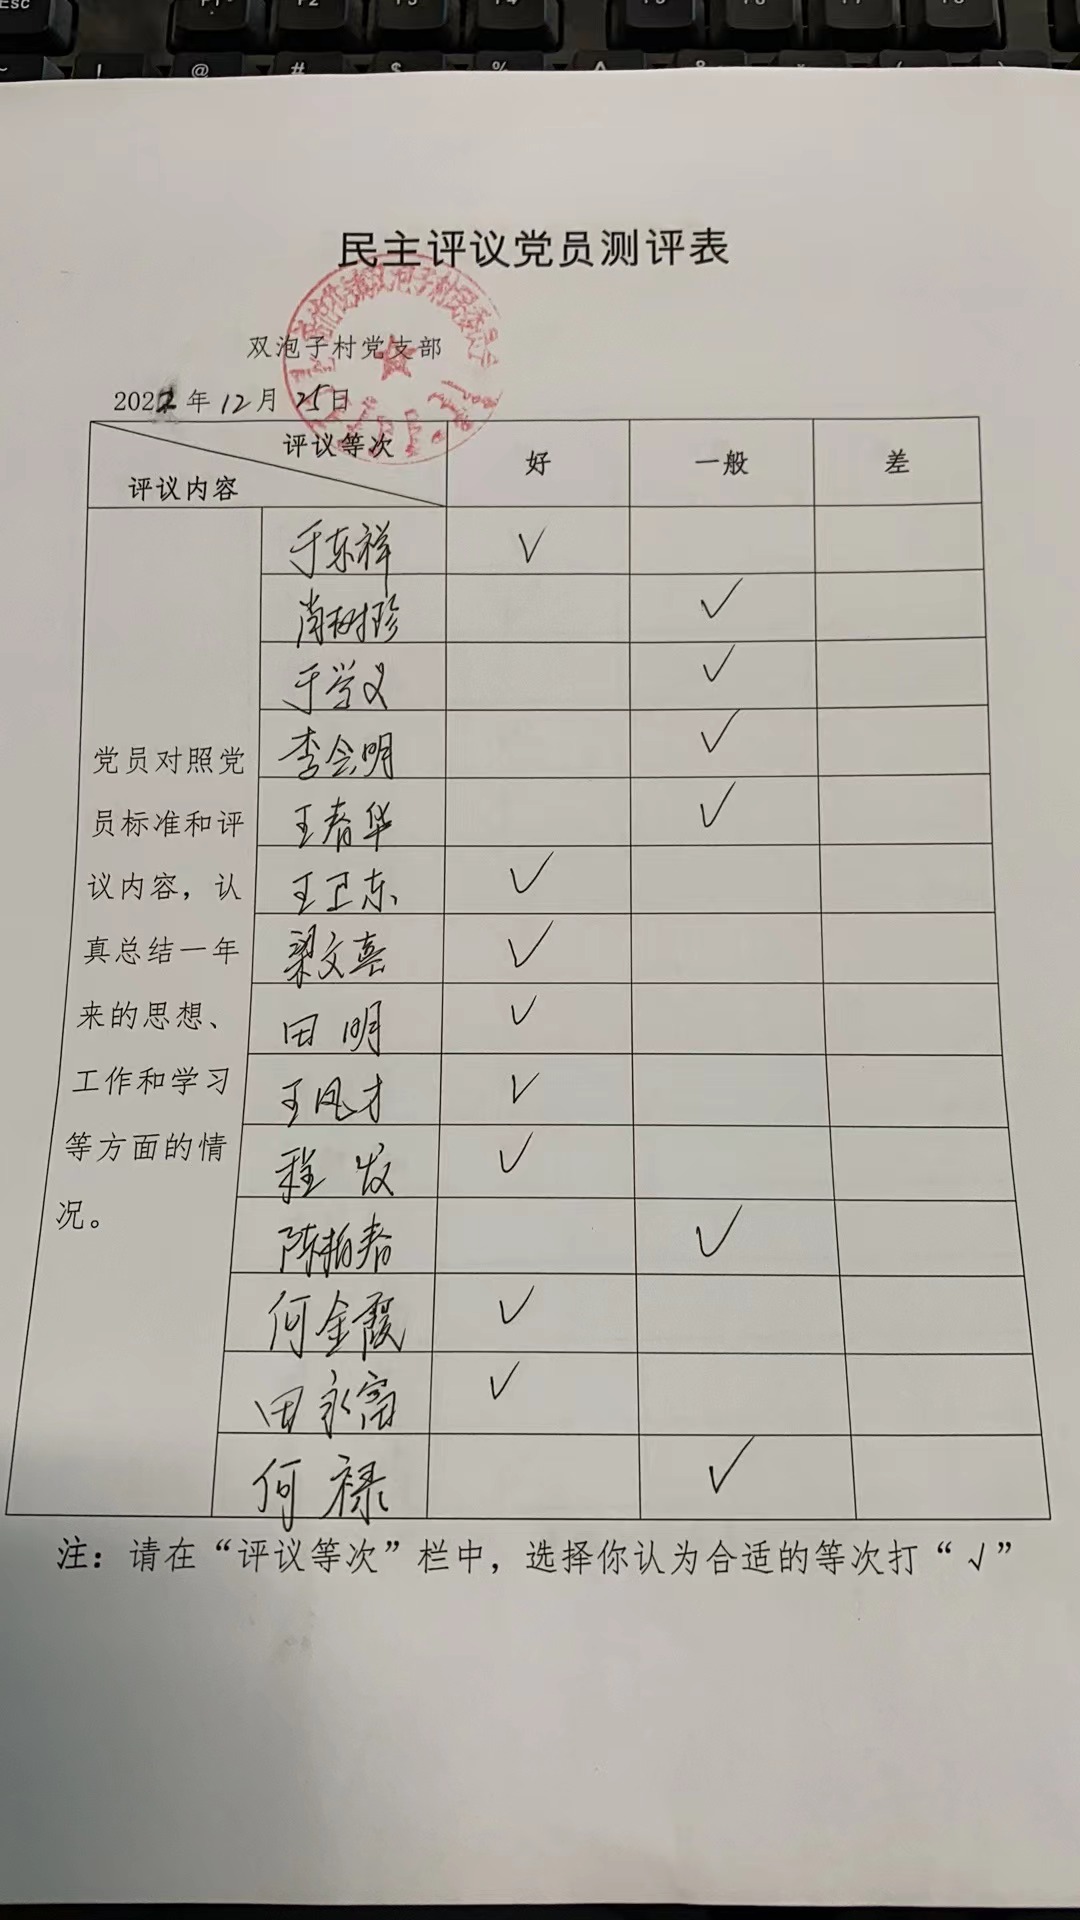 民主评议党员测评表
双泡子村党支部
2022年12月25日
评议等次
评议内容
好
一般
差
党员对照党
员标准和评
议内容，认
真总结一年
来的思想、
工作和学习
等方面的情
况。
于东祥 √
肖树珍 √
于学义 √
李会明 √
王春华 √
王卫东 √
梁文喜 √
田明 √
王凤才 √
程发 √
陈柏春 √
何金霞 √
田永富 √
何禄 √
注：请在“评议等次”栏中，选择你认为合适的等次打“√”